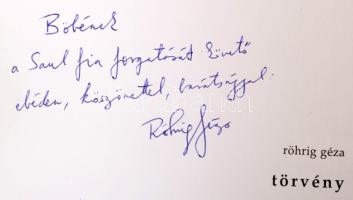 Böbének
a Saul fia forgatását követő
ebéden, köszönettel, barátsággal:
Röhrig Géza
röhrig géza
törvény